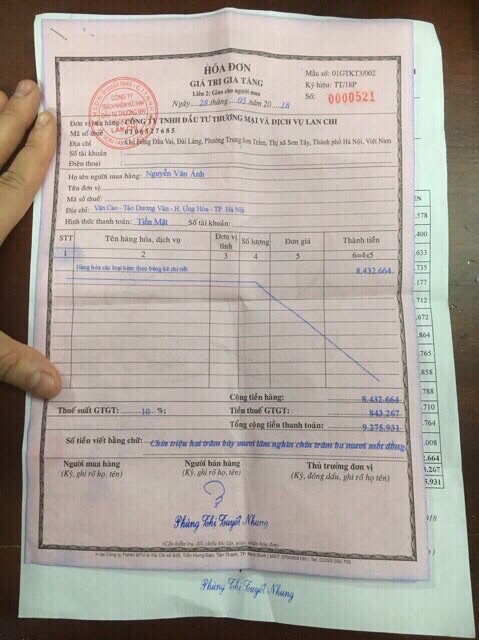 HÓA ĐƠN
GIÁ TRỊ GIA TĂNG
Liên 2: Giao cho người mua
Ngày 28 tháng 05 năm 2018
Mẫu số: 01GTKT3/002
Ký hiệu: TT/18P
Số: 0000521
Đơn vị bán hàng: CÔNG TY TNHH ĐẦU TƯ THƯƠNG MẠI VÀ DỊCH VỤ LAN CHI
Mã số thuế: 0106527685
Địa chỉ: Khu Đồng Đầu Vai, Đài Láng, Phường Trung Sơn Trầm, Thị xã Sơn Tây, Thành phố Hà Nội, Việt Nam
Số tài khoản:
Điện thoại
Họ tên người mua hàng: Nguyễn Văn Ánh
Tên đơn vị:
Mã số thuế:
Địa chỉ: Vân Cao - Tảo Dương Văn - H. Ứng Hòa - TP. Hà Nội
Hình thức thanh toán: Tiền Mặt Số tài khoản:
STT Tên hàng hóa, dịch vụ Đơn vị tính Số lượng Đơn giá Thành tiền
1 2 3 4 5 6=4x5
Hàng hóa các loại kèm theo bảng kê chi tiết 8.432.664
Cộng tiền hàng: 8.432.664
Thuế suất GTGT: 10 %; Tiền thuế GTGT: 843.267
Tổng cộng tiền thanh toán: 9.275.931
Số tiền viết bằng chữ: Chín triệu hai trăm bảy mươi lăm nghìn chín trăm ba mươi mốt đồng.
Người mua hàng Người bán hàng Thủ trưởng đơn vị
(Ký, ghi rõ họ, tên) (Ký, ghi rõ họ, tên) (Ký, đóng dấu, ghi rõ họ, tên)
Phùng Thị Tuyết Nhung
(Cần kiểm tra, đối chiếu khi lập, giao, nhận hóa đơn)
Phùng Thị Tuyết Nhung
.578
.000
.735
.864
.765
.788
.710
.764
2.664
3.267
5.931
2018